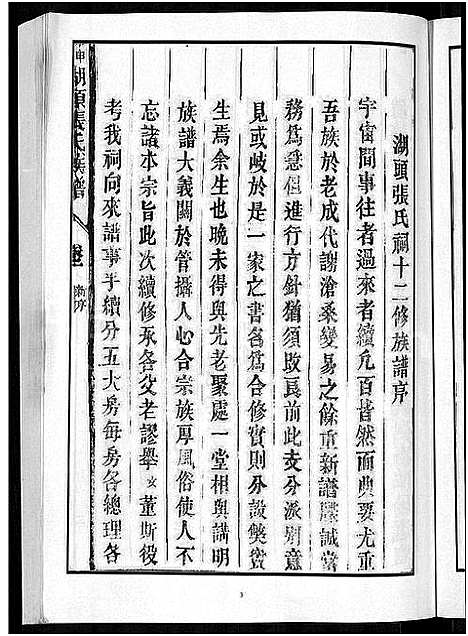 湖頭張氏祠十二修族譜序
宇宙間事往者過來者續凡百皆然而典要尤重
吾族於老成代謝滄桑變易之餘重新譜牒誠當
務為急但進行方針猶須改良前此支分派別意
見或歧於一家之書名為合修實則分設獎賞
生焉余生也晚未得與先老聚處一堂相與講明
族譜大義關於管攝人心合宗族厚風俗使人不
忘諸本宗旨此次續修承各父老謬舉 董斯役
考我祠向來譜事手續分五大房每房各總理各
湖頭張氏族譜
卷
序